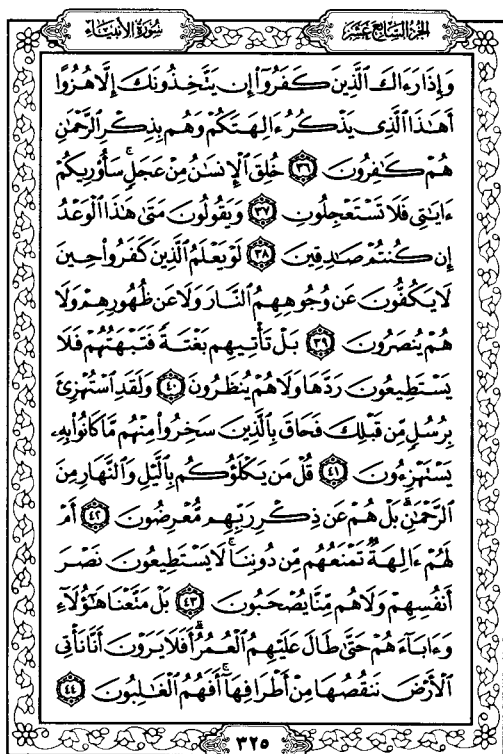 سُورَةُ الأَنبِيَاء
الجُزْءُ السَّابِعَ عَشَر
وَإِذَا رَءَاكَ الَّذِينَ كَفَرُوٓا۟ إِن يَتَّخِذُونَكَ إِلَّا هُزُوًا
أَهَٰذَا الَّذِى يَذْكُرُ ءَالِهَتَكُمْ وَهُم بِذِكْرِ الرَّحْمَٰنِ
هُمْ كَٰفِرُونَ ٣٦ خُلِقَ الْإِنسَٰنُ مِنْ عَجَلٍ ۚ سَأُو۟رِيكُمْ
ءَايَٰتِى فَلَا تَسْتَعْجِلُونِ ٣٧ وَيَقُولُونَ مَتَىٰ هَٰذَا الْوَعْدُ
إِن كُنتُمْ صَٰدِقِينَ ٣٨ لَوْ يَعْلَمُ الَّذِينَ كَفَرُوا۟ حِينَ
لَا يَكُفُّونَ عَن وُجُوهِهِمُ النَّارَ وَلَا عَن ظُهُورِهِمْ وَلَا
هُمْ يُنصَرُونَ ٣٩ بَلْ تَأْتِيهِم بَغْتَةً فَتَبْهَتُهُمْ فَلَا
يَسْتَطِيعُونَ رَدَّهَا وَلَا هُمْ يُنظَرُونَ ٤٠ وَلَقَدِ اسْتُهْزِئَ
بِرُسُلٍ مِّن قَبْلِكَ فَحَاقَ بِالَّذِينَ سَخِرُوا۟ مِنْهُم مَّا كَانُوا۟ بِهِۦ
يَسْتَهْزِءُونَ ٤١ قُلْ مَن يَكْلَؤُكُم بِالَّيْلِ وَالنَّهَارِ مِنَ
الرَّحْمَٰنِ ۗ بَلْ هُمْ عَن ذِكْرِ رَبِّهِم مُّعْرِضُونَ ٤٢ أَمْ
لَهُمْ ءَالِهَةٌ تَمْنَعُهُم مِّن دُونِنَا ۚ لَا يَسْتَطِيعُونَ نَصْرَ
أَنفُسِهِمْ وَلَا هُم مِّنَّا يُصْحَبُونَ ٤٣ بَلْ مَتَّعْنَا هَٰٓؤُلَآءِ
وَءَابَآءَهُمْ حَتَّىٰ طَالَ عَلَيْهِمُ الْعُمُرُ ۗ أَفَلَا يَرَوْنَ أَنَّا نَأْتِى
الْأَرْضَ نَنقُصُهَا مِنْ أَطْرَافِهَآ ۚ أَفَهُمُ الْغَٰلِبُونَ ٤٤
٣٢٥